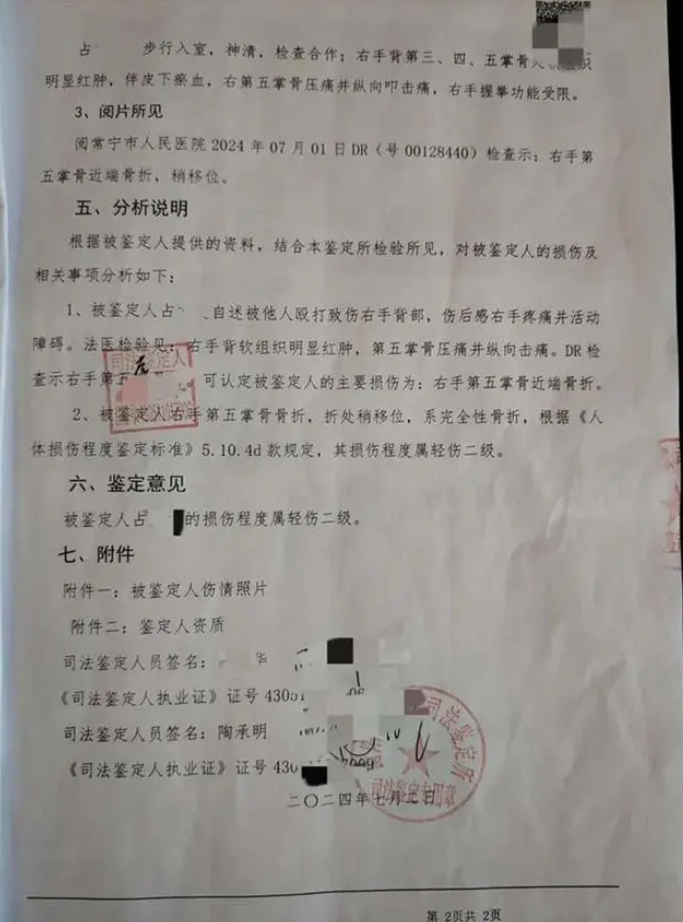 占 步行入室，神清，检查合作；右手背第三、四、五掌骨
明显红肿，伴皮下瘀血，右第五掌骨压痛并纵向叩击痛，右手握拳功能受限。
3、阅片所见
阅常宁市人民医院 2024 年 07 月 01 日 DR（号 00128440）检查示：右手第
五掌骨近端骨折，稍移位。
五、分析说明
根据被鉴定人提供的资料，结合本鉴定所检验所见，对被鉴定人的损伤及
相关事项分析如下：
1、被鉴定人占 自述被他人殴打致伤右手背部，伤后感右手疼痛并活动
障碍。法医检验见：右手背软组织明显红肿，第五掌骨压痛并纵向击痛。DR 检
查示右手第五 可认定被鉴定人的主要损伤为：右手第五掌骨近端骨折。
司法鉴定人
2、被鉴定人右手第五掌骨骨折，折处稍移位，系完全性骨折，根据《人
体损伤程度鉴定标准》5.10.4d 款规定，其损伤程度属轻伤二级。
六、鉴定意见
被鉴定人占 的损伤程度属轻伤二级。
七、附件
附件一：被鉴定人伤情照片
附件二：鉴定人资质
司法鉴定人员签名：
《司法鉴定人执业证》证号 4305
司法鉴定人员签名：陶承明
《司法鉴定人执业证》证号 430
司法鉴定所
司法鉴定专用章
二〇二四年七月三日
第 2页共 2页